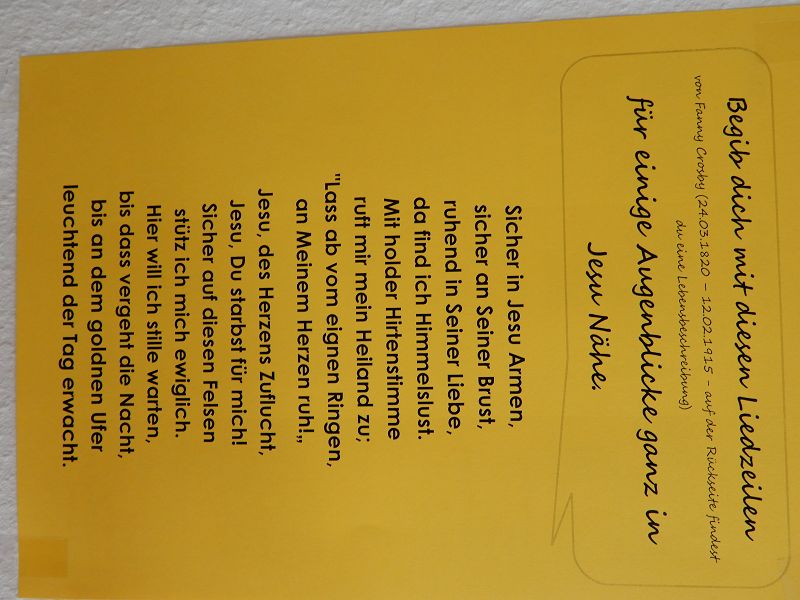 Begib dich mit diesen Liedzeilen
von Fanny Crosby (24.03.1820 – 12.02.1915 – auf der Rückseite findest
du eine Lebensbeschreibung)
für einige Augenblicke ganz in
Jesu Nähe.
Sicher in Jesu Armen,
sicher an Seiner Brust,
ruhend in Seiner Liebe,
da find ich Himmelslust.
Mit holder Hirtenstimme
ruft mir mein Heiland zu;
"Lass ab vom eignen Ringen,
an Meinem Herzen ruh!„
Jesu, des Herzens Zuflucht,
Jesu, Du starbst für mich!
Sicher auf diesen Felsen
stütz ich mich ewiglich.
Hier will ich stille warten,
bis dass vergeht die Nacht,
bis an dem goldnen Ufer
leuchtend der Tag erwacht.